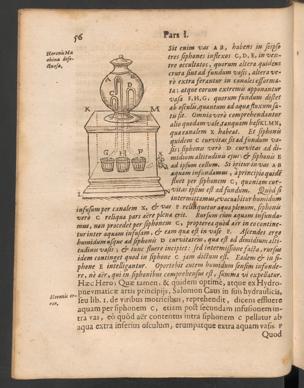 56
Pars I.
Heronis Ma
china defe-
ctuosa,
Sit enim vas A B, habens in seipso
tres siphones inflexos C, D, E, in ven-
tre occultatos, quorum altera quidem
crura sint ad fundum vasis, altera ve-
rò extra ferantur in canales efforma-
ta: atque eorum extremis apponantur
vasa F, H, G. quorum fundum distet
ab osculis, quantum ad aquæ fluxum sa-
tis sit. Omnia verò comprehendantur
alio quodam vale, tanquam basi: L M N,
quæ canalem X habeat. Et siphonis
quidem C curvitas sit ad fundum va-
sis: siphonis verò D curvitas ad di-
midium altitudinis ejus: & siphonis E
ad ipsum collum. Si igitur in vas A B
aquam infundamus, à principio quidē
fluet per siphonem C, quoniam cur-
vitas ipsius est ad fundum. Quòd si
intermittamus, evacuabitur humidum
infusum per canalem X, & vas F relinquetur aqua plenum, siphonis
verò C reliqua pars aëre plena erit. Rursum cùm aquam infunda-
mus, non procedet per siphonem C, propterea quòd aër in eo contine-
tur inter aquam infusam, & eam quæ est in vase F. Ascendet ergo
humidum usque ad siphonis D curvitatem, quæ est ad dimidium alti-
tudinis vasis; & tunc fluere incipiet: sed intermissione facta, rursus
idem continget quod in siphone C jam dictum est. Eadem & in si-
phone E intelligantur. Oportebit autem humidum sensim infunde-
re, nè aër, qui in siphonibus comprehensus est, summa vi expellatur.
Heronis er-
ror,
Hæc Hero; Quæ tamen, & quidem optimè, atque ex Hydro-
pneumaticæ artis principijs, Salomon Caus in suis hydraulicis,
seu lib. 1. de viribus motricibus, reprehendit, dicens effluere
aquam per siphonem C, etiam post secundam infusionem in-
tra vas, eò quòd aër contentus intra siphonem C pellatur ab
aqua extra inferius osculum, erumpatque extra aquam vasis F
Quod